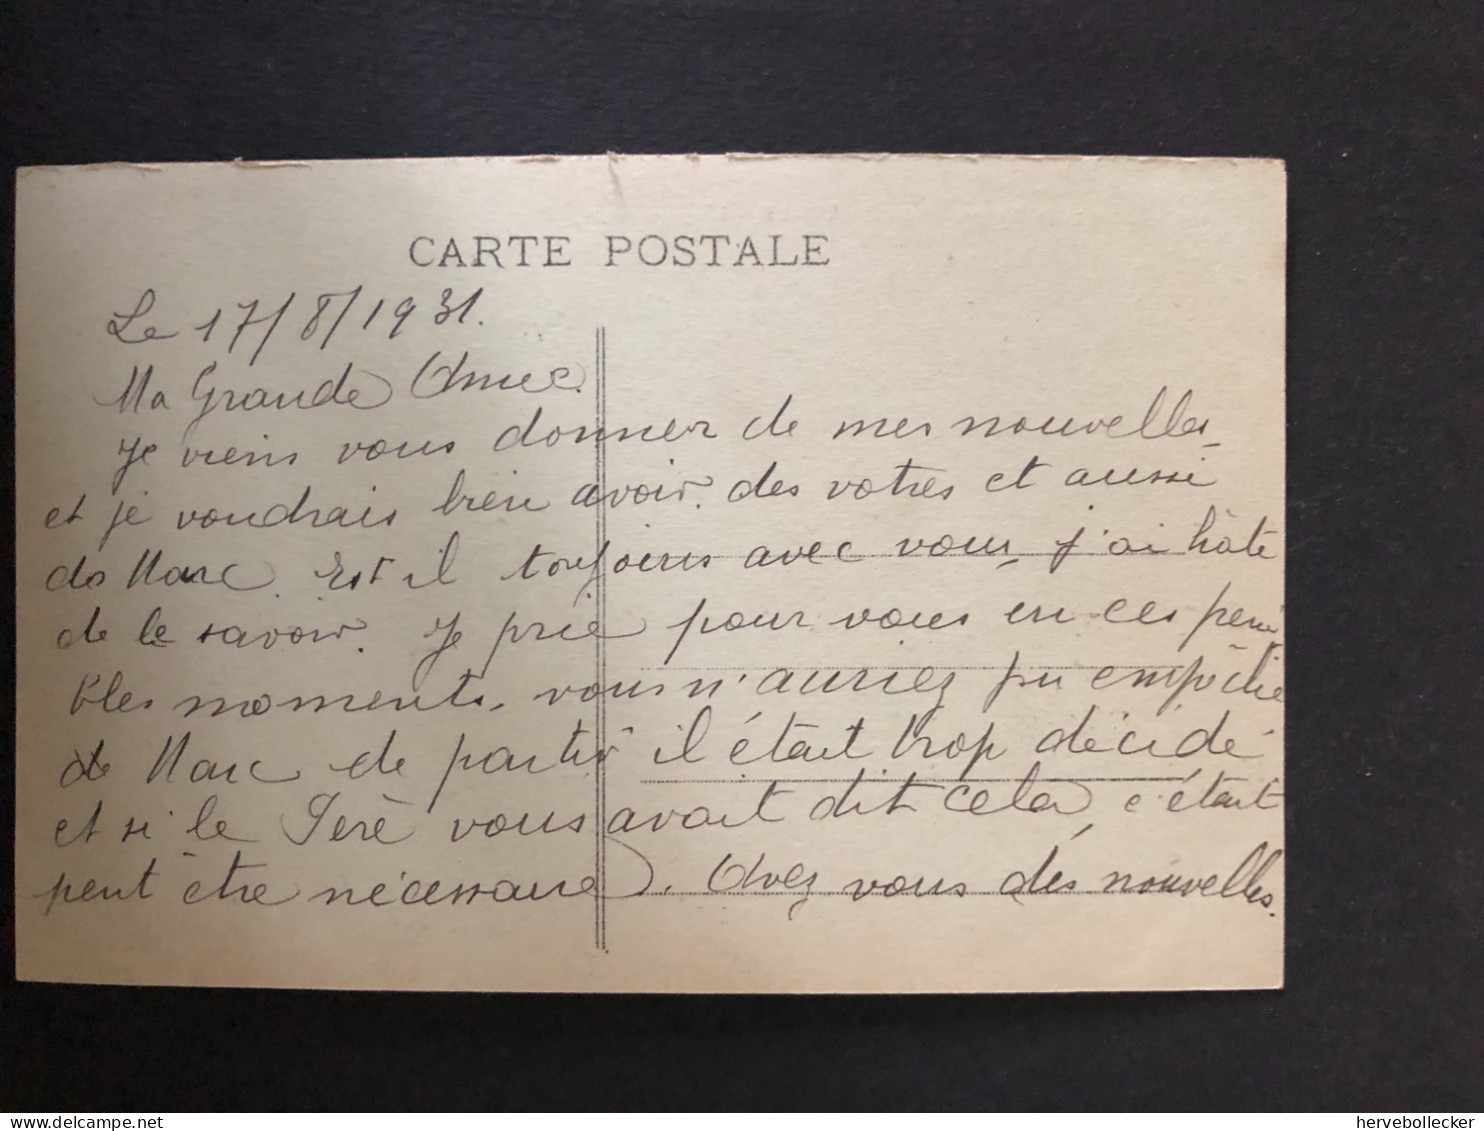 CARTE POSTALE
Le 17/8/1931.
Ma Grande Amie.
Je viens vous donner de mes nouvelles
et je voudrais bien avoir des votres et aussi
de Marc. Est il toujours avec vous, j'ai hâte
de le savoir. Je prie pour vous en ces péni
bles moments. vous n'auriez pu empêché
de Marc de partir il était trop décidé
et si le Père vous avait dit cela, c'était
peut être nécessaire. Avez vous dés nouvelles.
hervebollecker
www.delcampe.net